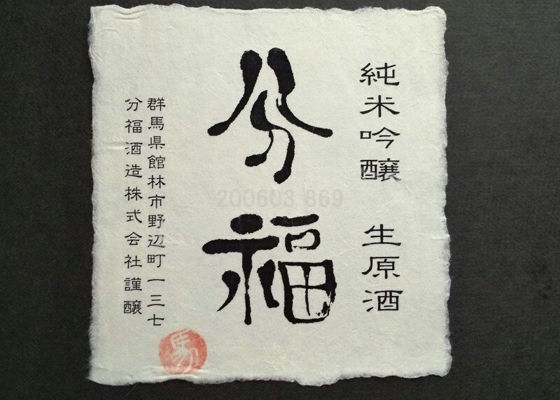 純米吟醸 生原酒
分福
群馬県館林市野辺町一三七
分福酒造株式会社謹醸
200603 869